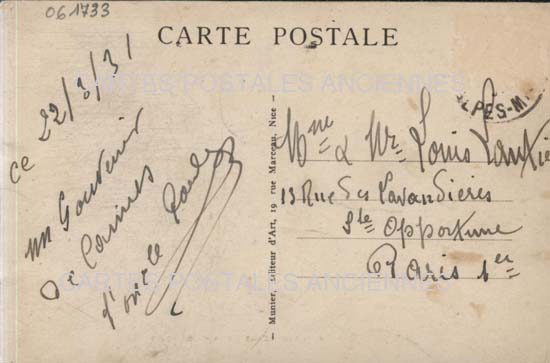 061733
CARTE POSTALE
CARTES POSTALES ANCIENNES
ce 22/3/31
un Souvenir
de Cannes
d'oncle
LPES-M
Mme & Mr Louis
13 Rue des Lavandières
Ste Opportune
Paris 1er
Munier, Editeur d'Art, 19 rue Marceau, Nice
CARTES POSTALES ANCIENNES